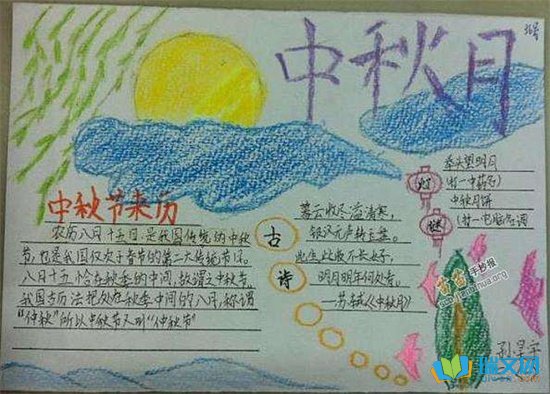 中秋月
中秋节来历
农历八月十五日,是我国传统的中秋
节,也是我国仅次于春节的第二大传统节日。
八月十五恰在秋季的中间,故谓之中秋节。
我国古历法把处在秋季中间的八月,称谓
“仲秋”所以中秋节又叫“仲秋节”
古诗
暮云收尽溢清寒,
银汉无声转玉盘。
此生此夜不长好,
明月明年何处看。
——苏轼《中秋月》
灯谜
举头望明月
(打一中药名)
中秋月饼
(打一电脑名词)
手抄报